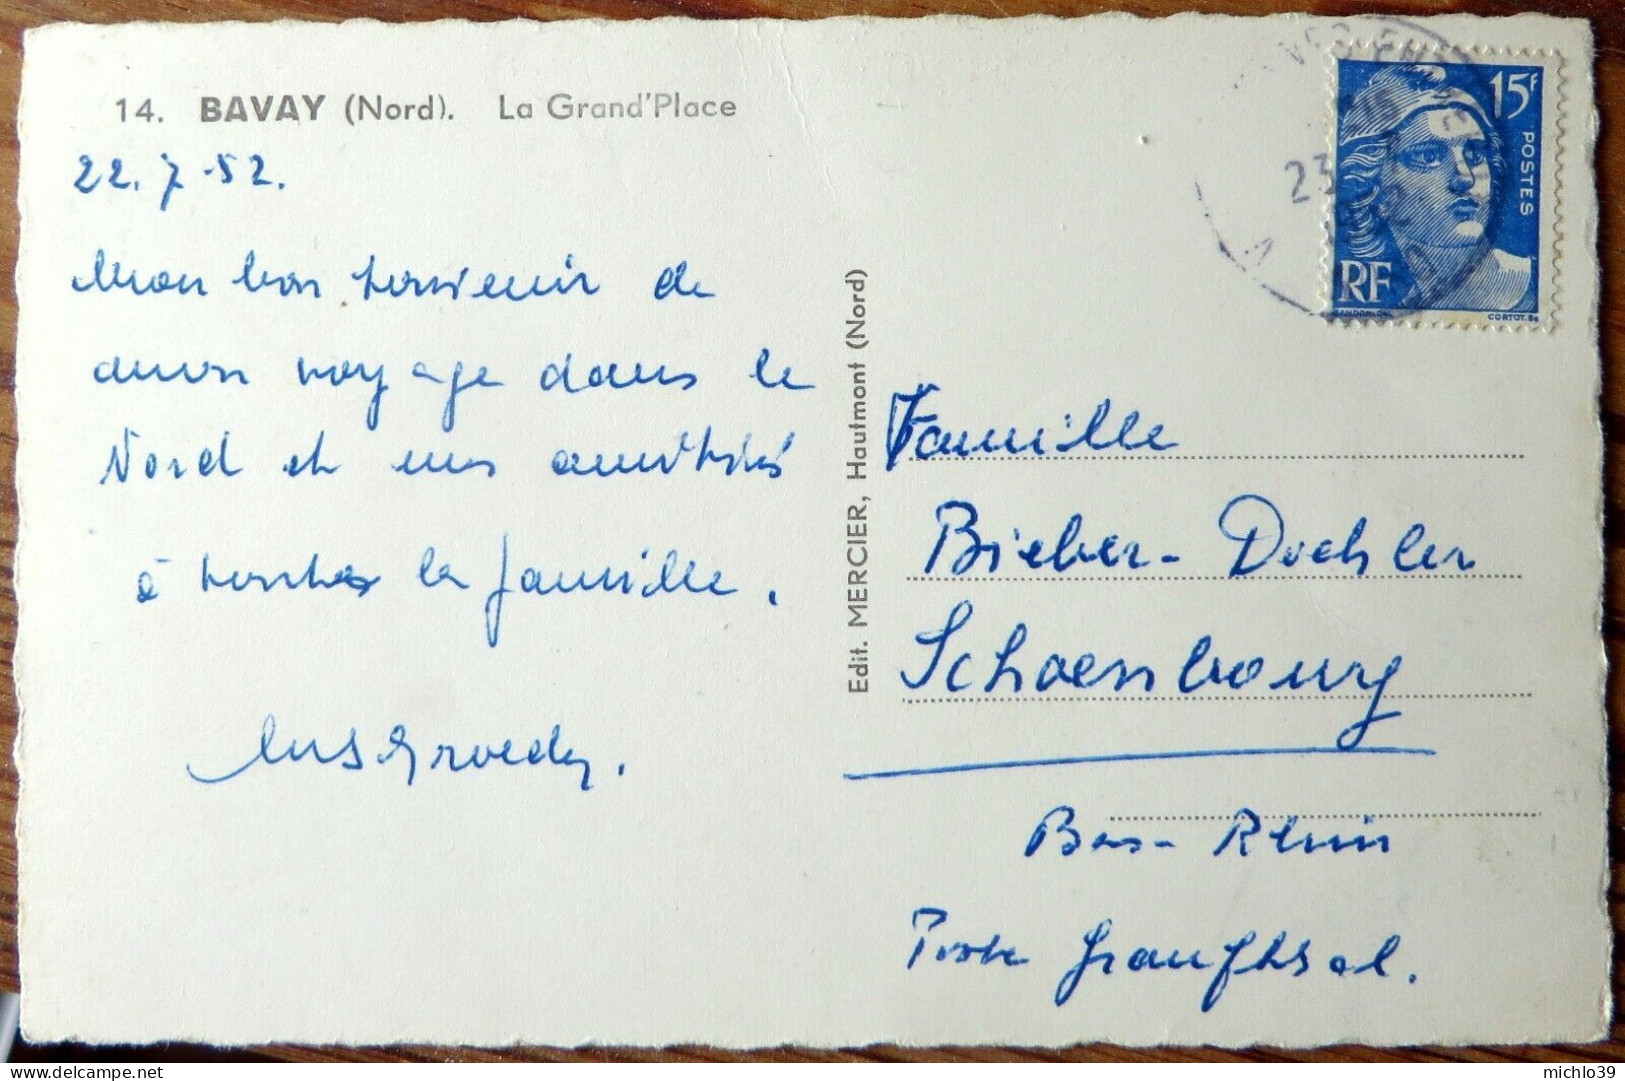 14. BAVAY (Nord). La Grand'Place
22.7.52.
Mon bon souvenir de
mon voyage dans le
Nord et mes amitiés
à toutes la famille.
Edit. MERCIER, Hautmont (Nord)
23
15F
POSTES
RF
GANDON.DEL
CORTOT.SC
Famille
Bieber-Dochsler
Schoenbourg
Bas-Rhin
Poste Graufthal.
delcampe.net
michlo39